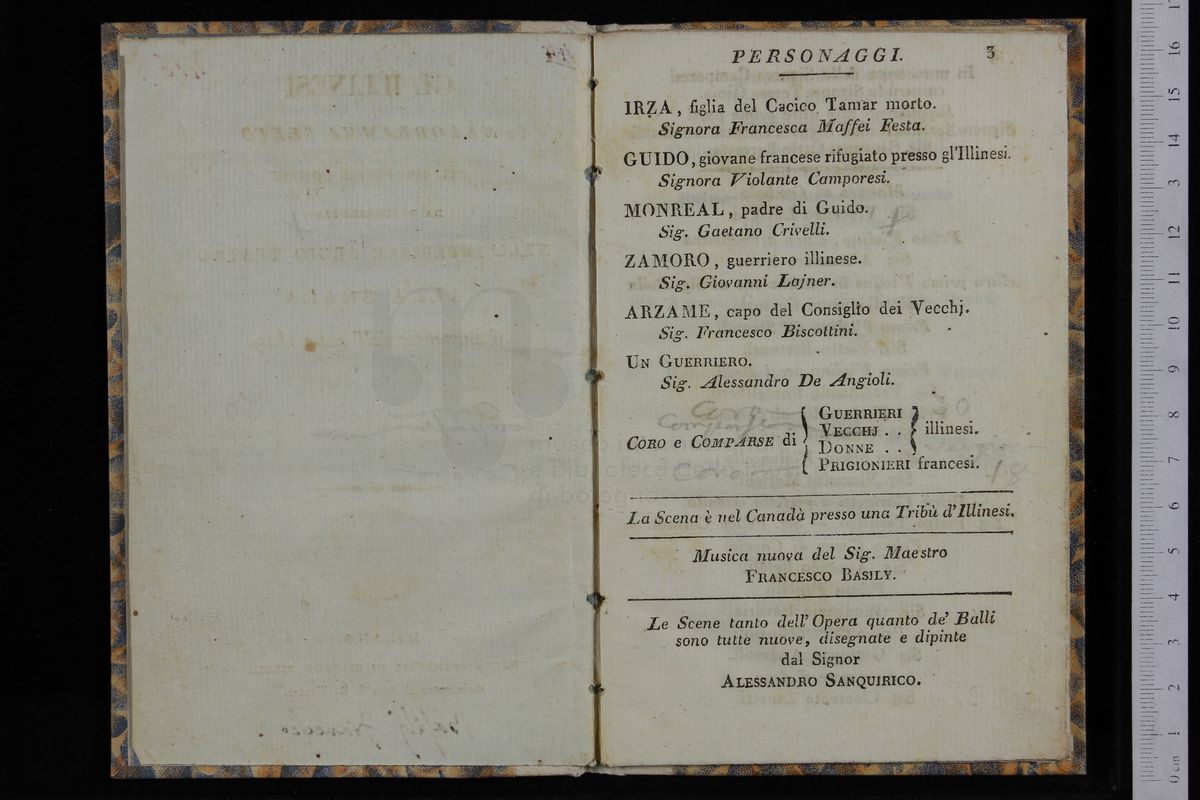 PERSONAGGI. 3
IRZA, figlia del Cacico Tamar morto.
Signora Francesca Maffei Festa.
GUIDO, giovane francese rifugiato presso gl'Illinesi.
Signora Violante Camporesi.
MONREAL, padre di Guido.
Sig. Gaetano Crivelli.
ZAMORO, guerriero illinese.
Sig. Giovanni Lajner.
ARZAME, capo del Consiglio dei Vecchj.
Sig. Francesco Biscottini.
UN GUERRIERO.
Sig. Alessandro De Angioli.
CORO e COMPARSE di
GUERRIERI
VECCHJ . .
DONNE . .
illinesi.
PRIGIONIERI francesi.
La Scena è nel Canadà presso una Tribù d'Illinesi.
Musica nuova del Sig. Maestro
FRANCESCO BASILY.
Le Scene tanto dell'Opera quanto de' Balli
sono tutte nuove, disegnate e dipinte
dal Signor
ALESSANDRO SANQUIRICO.
0 cm 1 2 3 4 5 6 7 8 9 10 11 12 13 14 15 16